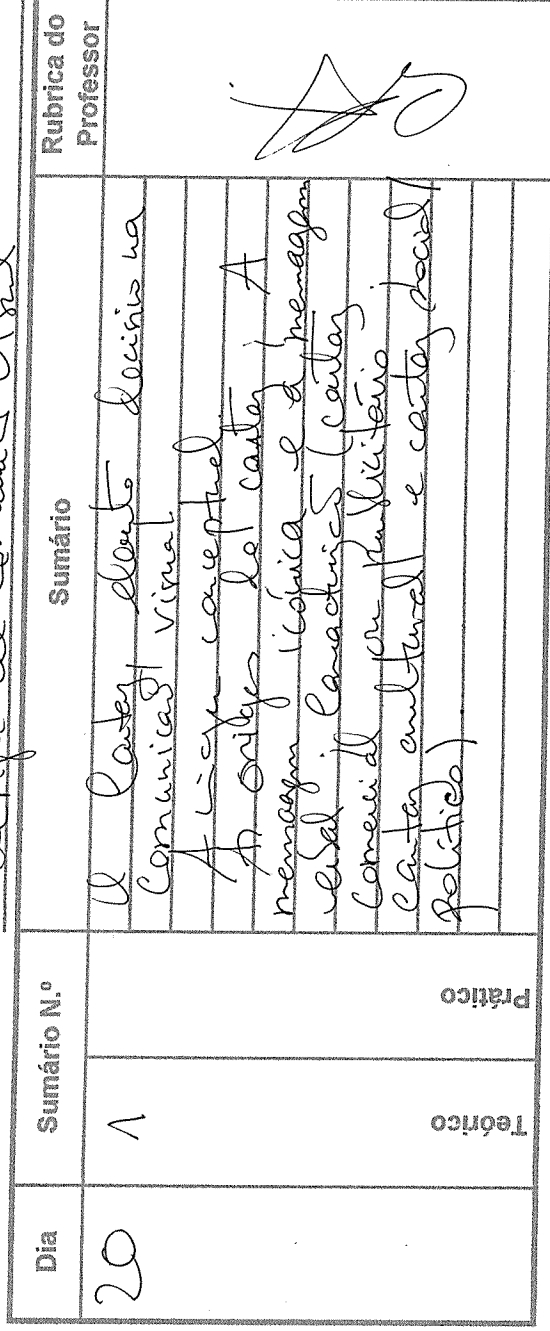 Dia
Sumário N.º
Sumário
Rubrica do
Professor
20
1
Teórico
Prático
O Cartaz elemento decisivo na
Comunicação visual.
conceptual
As origens do cartaz. A
mensagem icónica e a mensagem
cartaz
Comercial ou publicitário
cartaz cultural e cartaz social/
político)